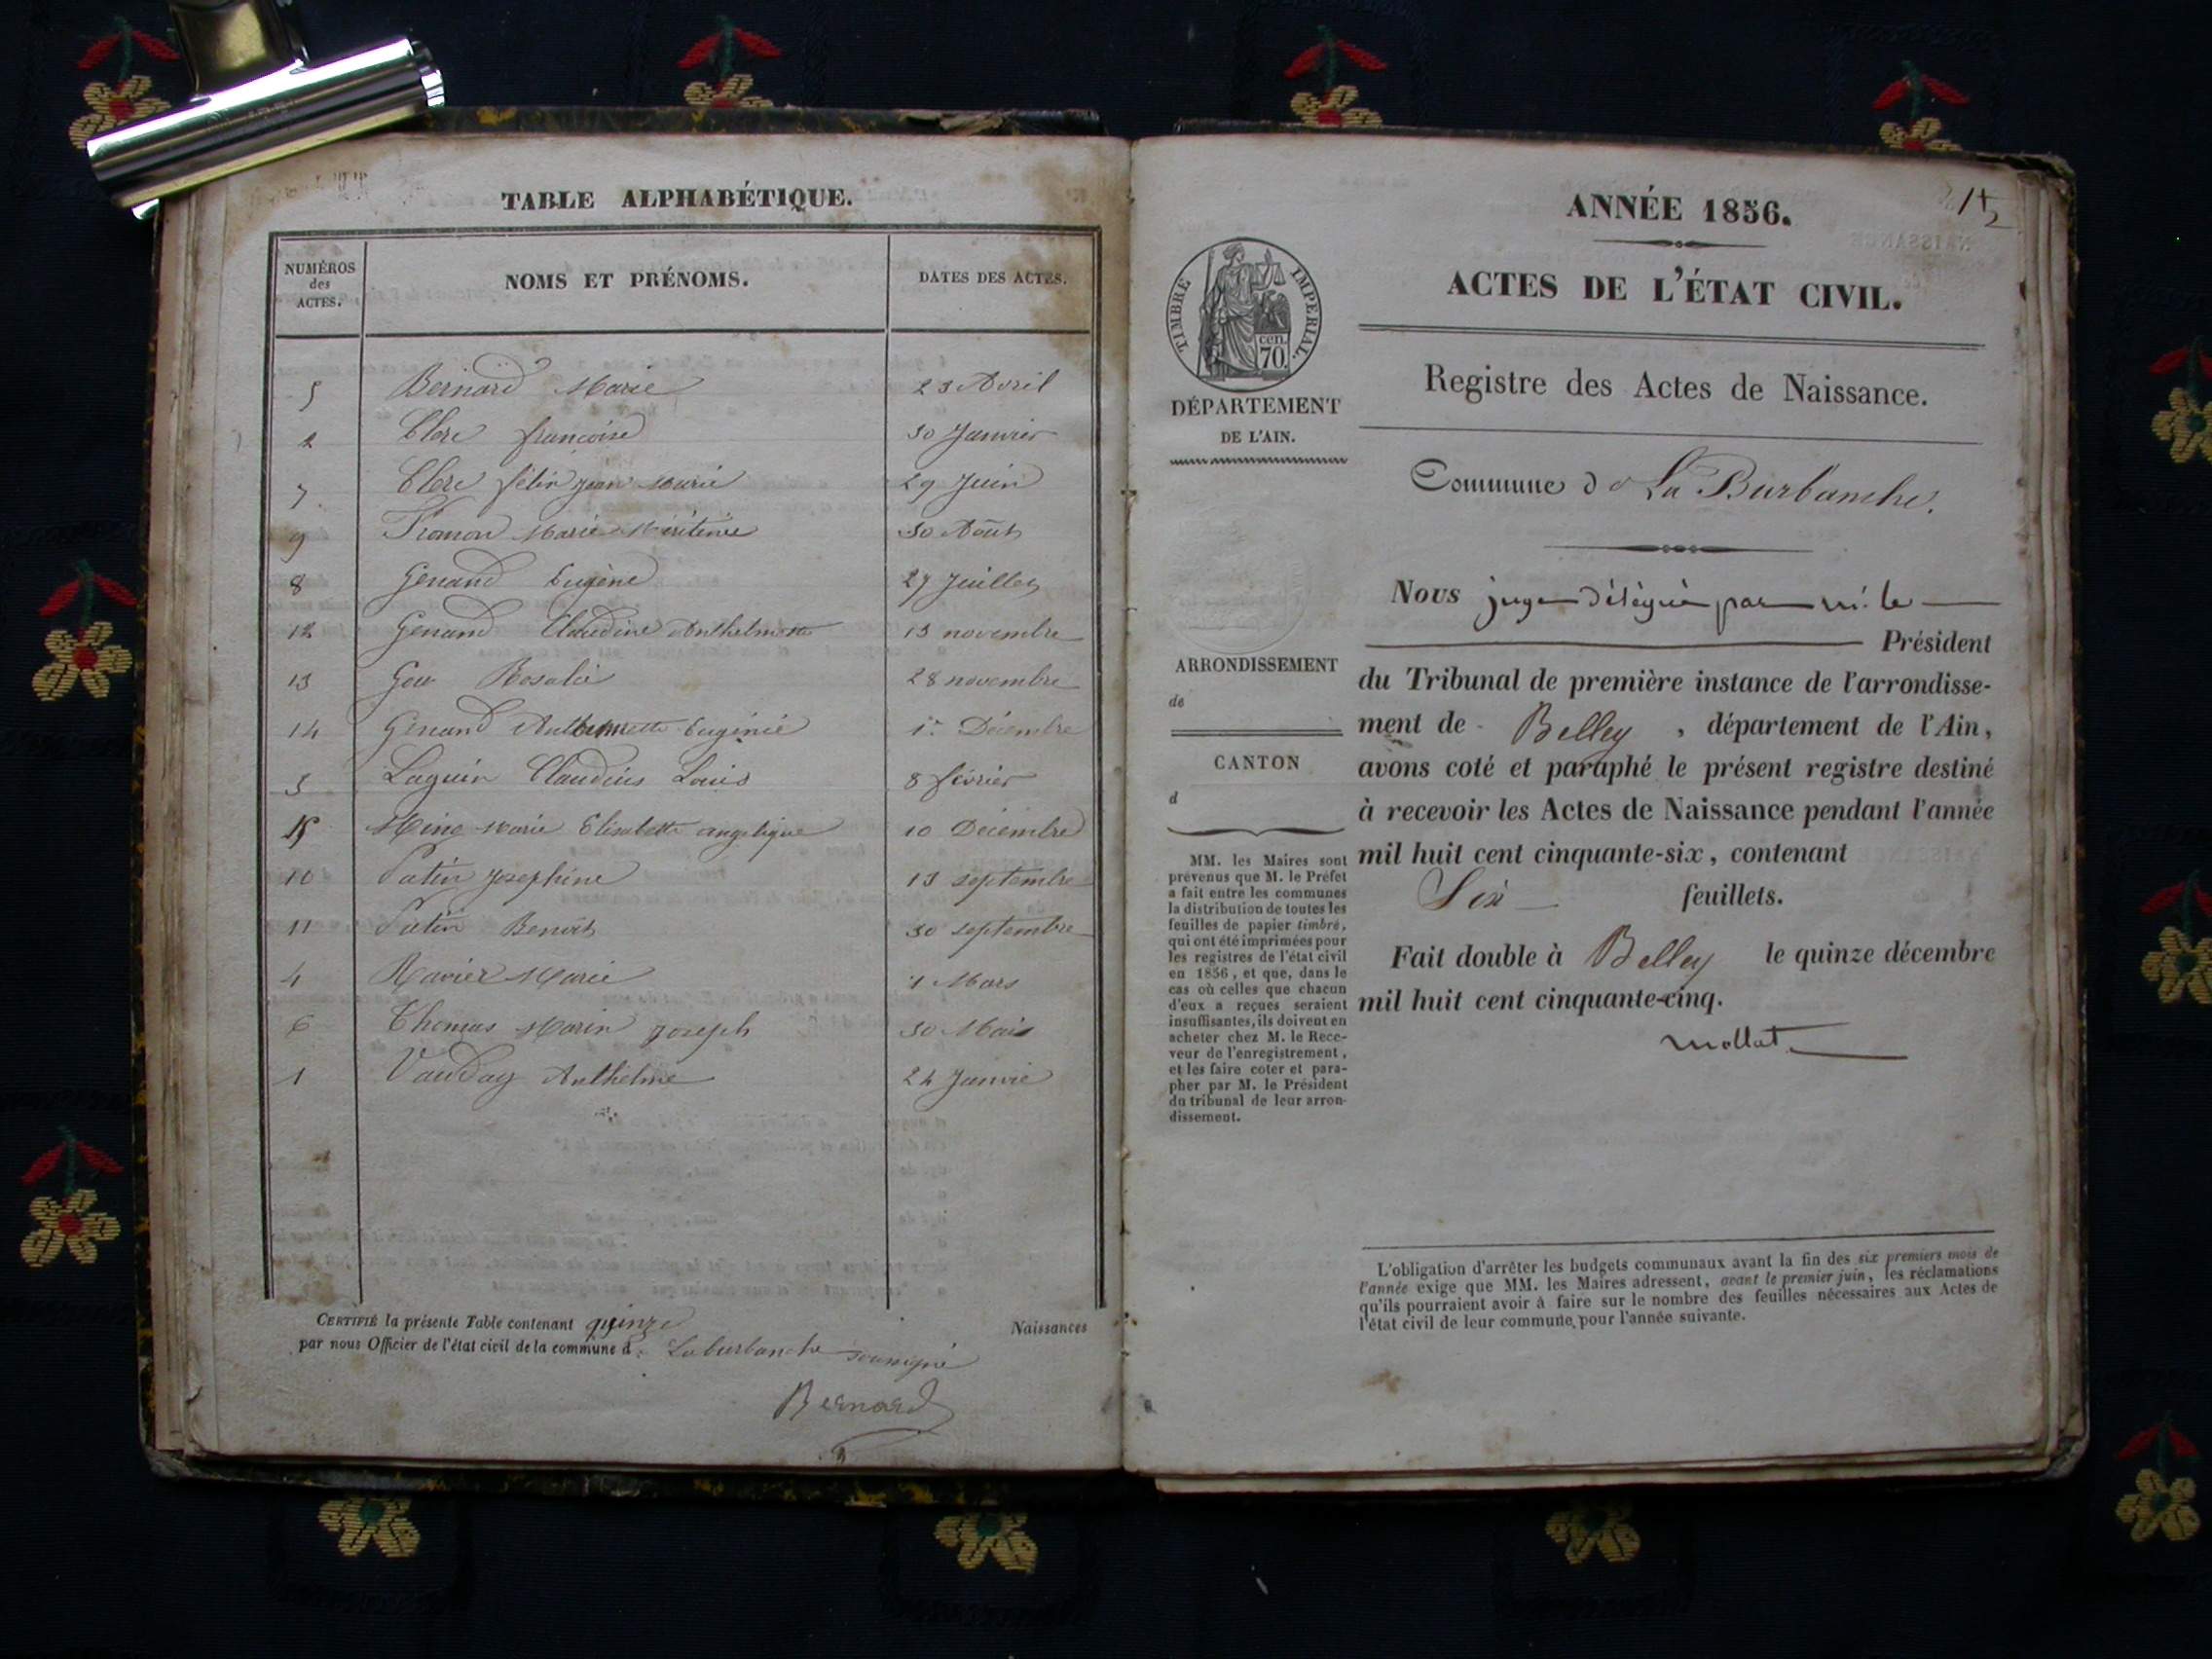 TABLE ALPHABÉTIQUE.
NUMÉROS des ACTES.
NOMS ET PRÉNOMS.
DATES DES ACTES.
5 Bernard Marie 23 Avril
2 Clerc françoise 30 Janvier
7 Clerc félix jean Marie 29 Juin
9 Marie 30 Août
8 Genand Eugène 27 Juillet
12 Genand Claudine Anthelmette 13 novembre
13 Rosalie 28 novembre
14 Genand Eugénie 1er Décembre
3 Laguin Claudius Louis 8 février
15 Marie Elisabeth angelique 10 Décembre
10 Patin Josephine 13 septembre
11 Patin Benoit 30 septembre
4 Ravier Marie 1 Mars
6 Thomas Marin joseph 30 Mai
1 Vauday Anthelme 24 Janvie
CERTIFIÉ la présente Table contenant quinze Naissances
par nous Officier de l'état civil de la commune d. Laburbanche soussigné
Bernard
ANNÉE 1856.
ACTES DE L'ÉTAT CIVIL.
TIMBRE IMPÉRIAL.
cen.
70.
DÉPARTEMENT
DE L'AIN.
Registre des Actes de Naissance.
Commune de La Burbanche.
Nous juge délégué par m. le
Président
du Tribunal de première instance de l'arrondisse-
ment de Belley, département de l'Ain,
avons coté et paraphé le présent registre destiné
à recevoir les Actes de Naissance pendant l'année
mil huit cent cinquante-six, contenant
Six feuillets.
Fait double à Belley le quinze décembre
mil huit cent cinquante-cinq.
mollat
ARRONDISSEMENT
de
CANTON
d
MM. les Maires sont
prévenus que M. le Préfet
a fait entre les communes
la distribution de toutes les
feuilles de papier timbré,
qui ont été imprimées pour
les registres de l'état civil
en 1856, et que, dans le
cas où celles que chacun
d'eux a reçues seraient
insuffisantes, ils doivent en
acheter chez M. le Rece-
veur de l'enregistrement,
et les faire coter et para-
pher par M. le Président
du tribunal de leur arron-
dissement.
L'obligation d'arrêter les budgets communaux avant la fin des six premiers mois de
l'année exige que MM. les Maires adressent, avant le premier juin, les réclamations
qu'ils pourraient avoir à faire sur le nombre des feuilles nécessaires aux Actes de
l'état civil de leur commune, pour l'année suivante.